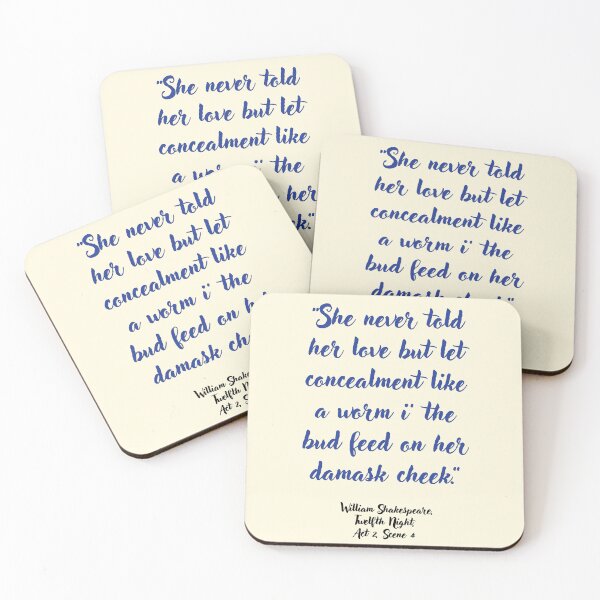 "She never told
her love but let
concealment like
a worm i" the
her
"She never told
her love but let
concealment like
a worm i" the
bud feed on her
damask cheek."
"She never told
her love but let
concealment like
a worm i" the
bud feed on
damask cheek
William
Twelfth
Act 2,
"She never told
her love but let
concealment like
a worm i" the
bud feed on her
damask cheek."
William Shakespeare,
Twelfth Night,
Act 2, Scene 4